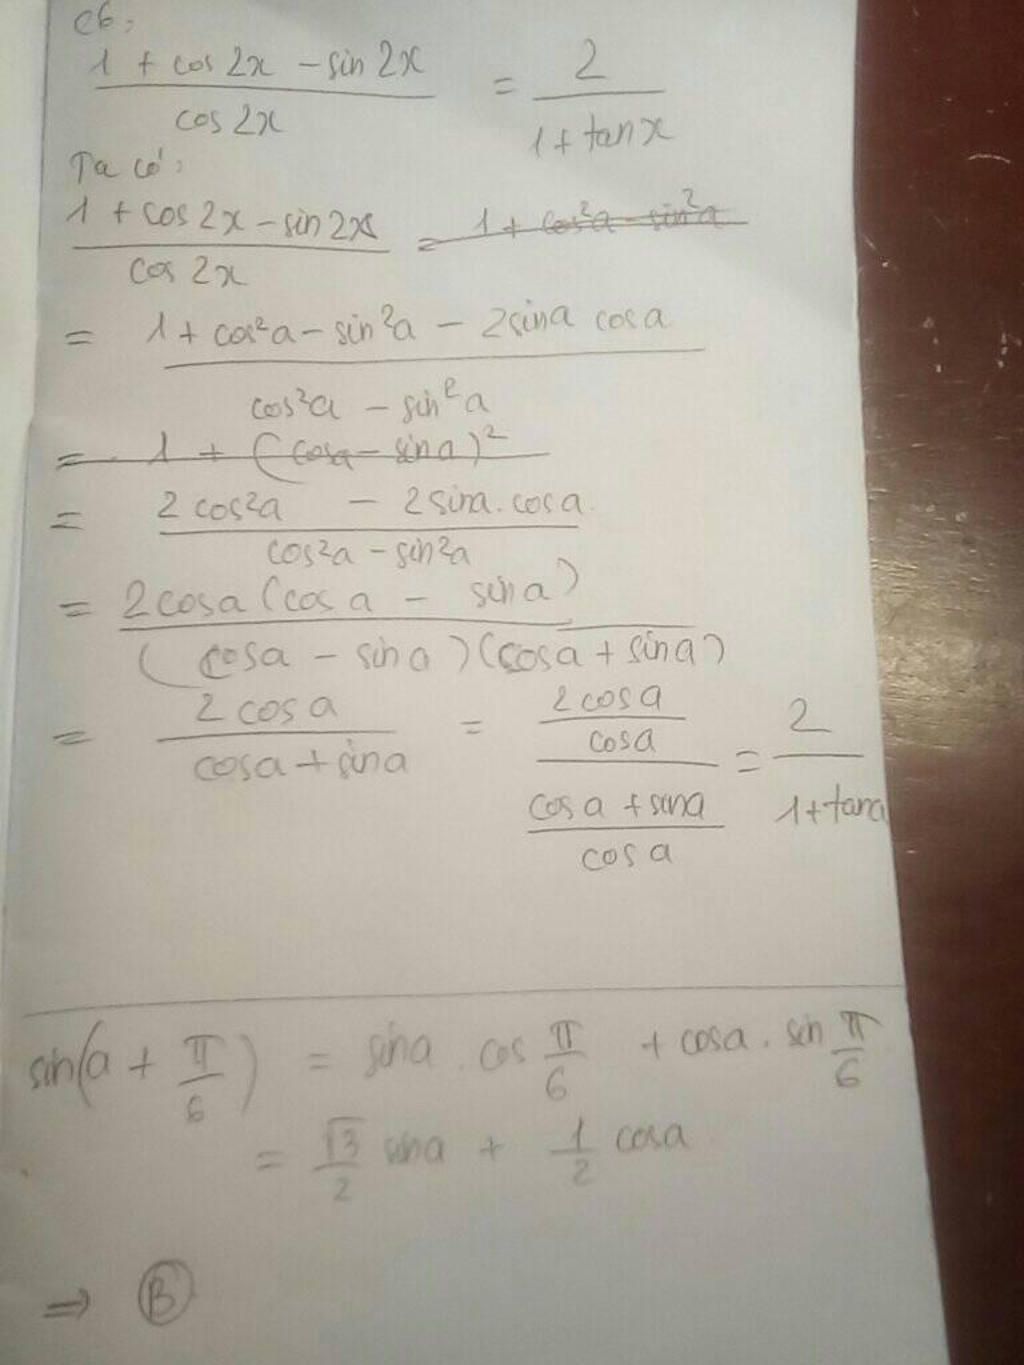 c6:
(1 + cos 2x - sin 2x) / (cos 2x) = 2 / (1 + tan x)
Ta có:
(1 + cos 2x - sin 2x) / (cos 2x) = 1 + cos²a - sin²a
= (1 + cos²a - sin²a - 2 sina cosa) / (cos²a - sin²a)
= 1 + (cosa - sina)²
= (2cos²a - 2sina.cosa) / (cos²a - sin²a)
= 2cosa(cosa - sina) / (cosa - sina)(cosa + sina)
= 2cosa / (cosa + sina) = (2cosa / cosa) / ((cosa + sina) / cosa) = 2 / (1 + tana)
sin(a + π/6) = sina . cos π/6 + cosa . sin π/6
= √3/2 sina + 1/2 cosa
⇒ B